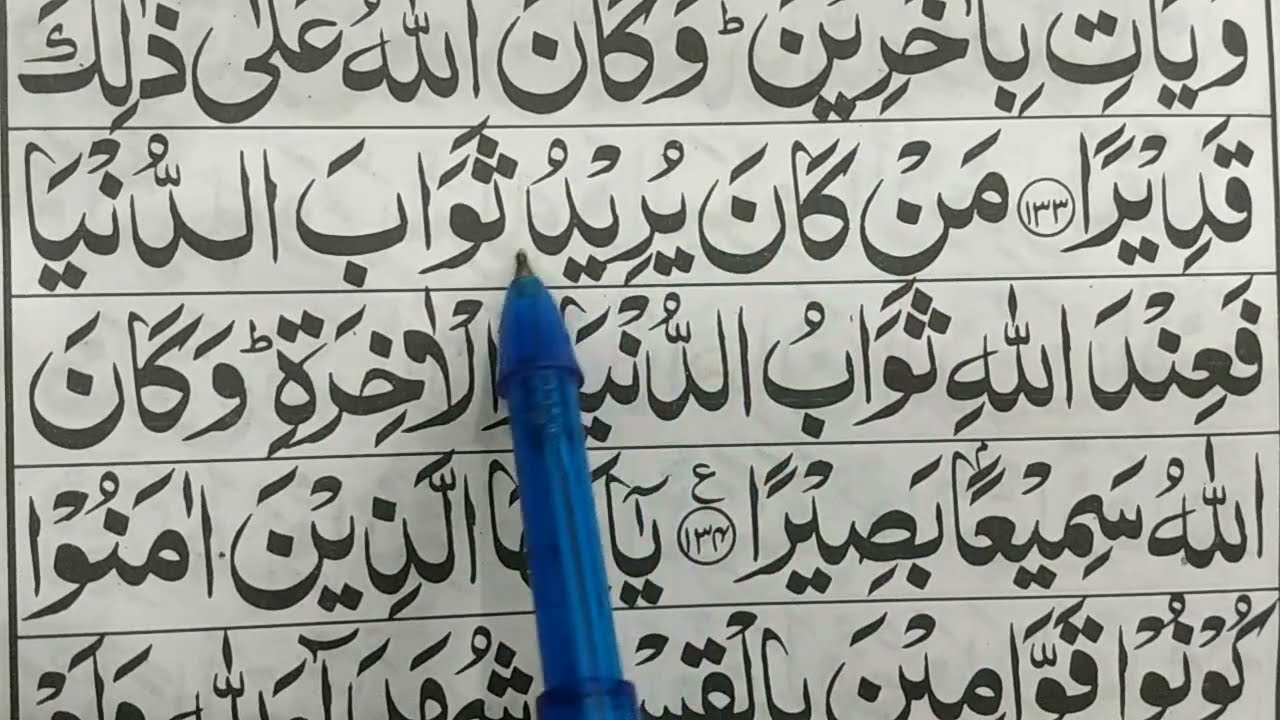 وَيَاْتِ بِاٰخَرِيْنَ ؕ وَكَانَ اللّٰهُ عَلٰى ذٰلِكَ
قَدِيْرًا ﴿۱۳۳﴾ مَنْ كَانَ يُرِيْدُ ثَوَابَ الدُّنْيَا
فَعِنْدَ اللّٰهِ ثَوَابُ الدُّنْيَا الْاٰخِرَةِ ؕ وَكَانَ
اللّٰهُ سَمِيْعًۢا بَصِيْرًا ﴿۱۳۴﴾ ع الَّذِيْنَ اٰمَنُوْا
كُوْنُوْا قَوَّامِيْنَ